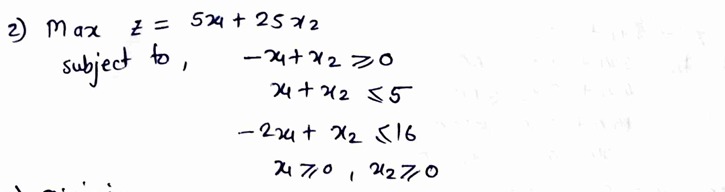 2) Max z = 5x1 + 25x2
subject to, -x1 + x2 ≥ 0
x1 + x2 ≤ 5
-2x1 + x2 ≤ 16
x1 ≥ 0, x2 ≥ 0